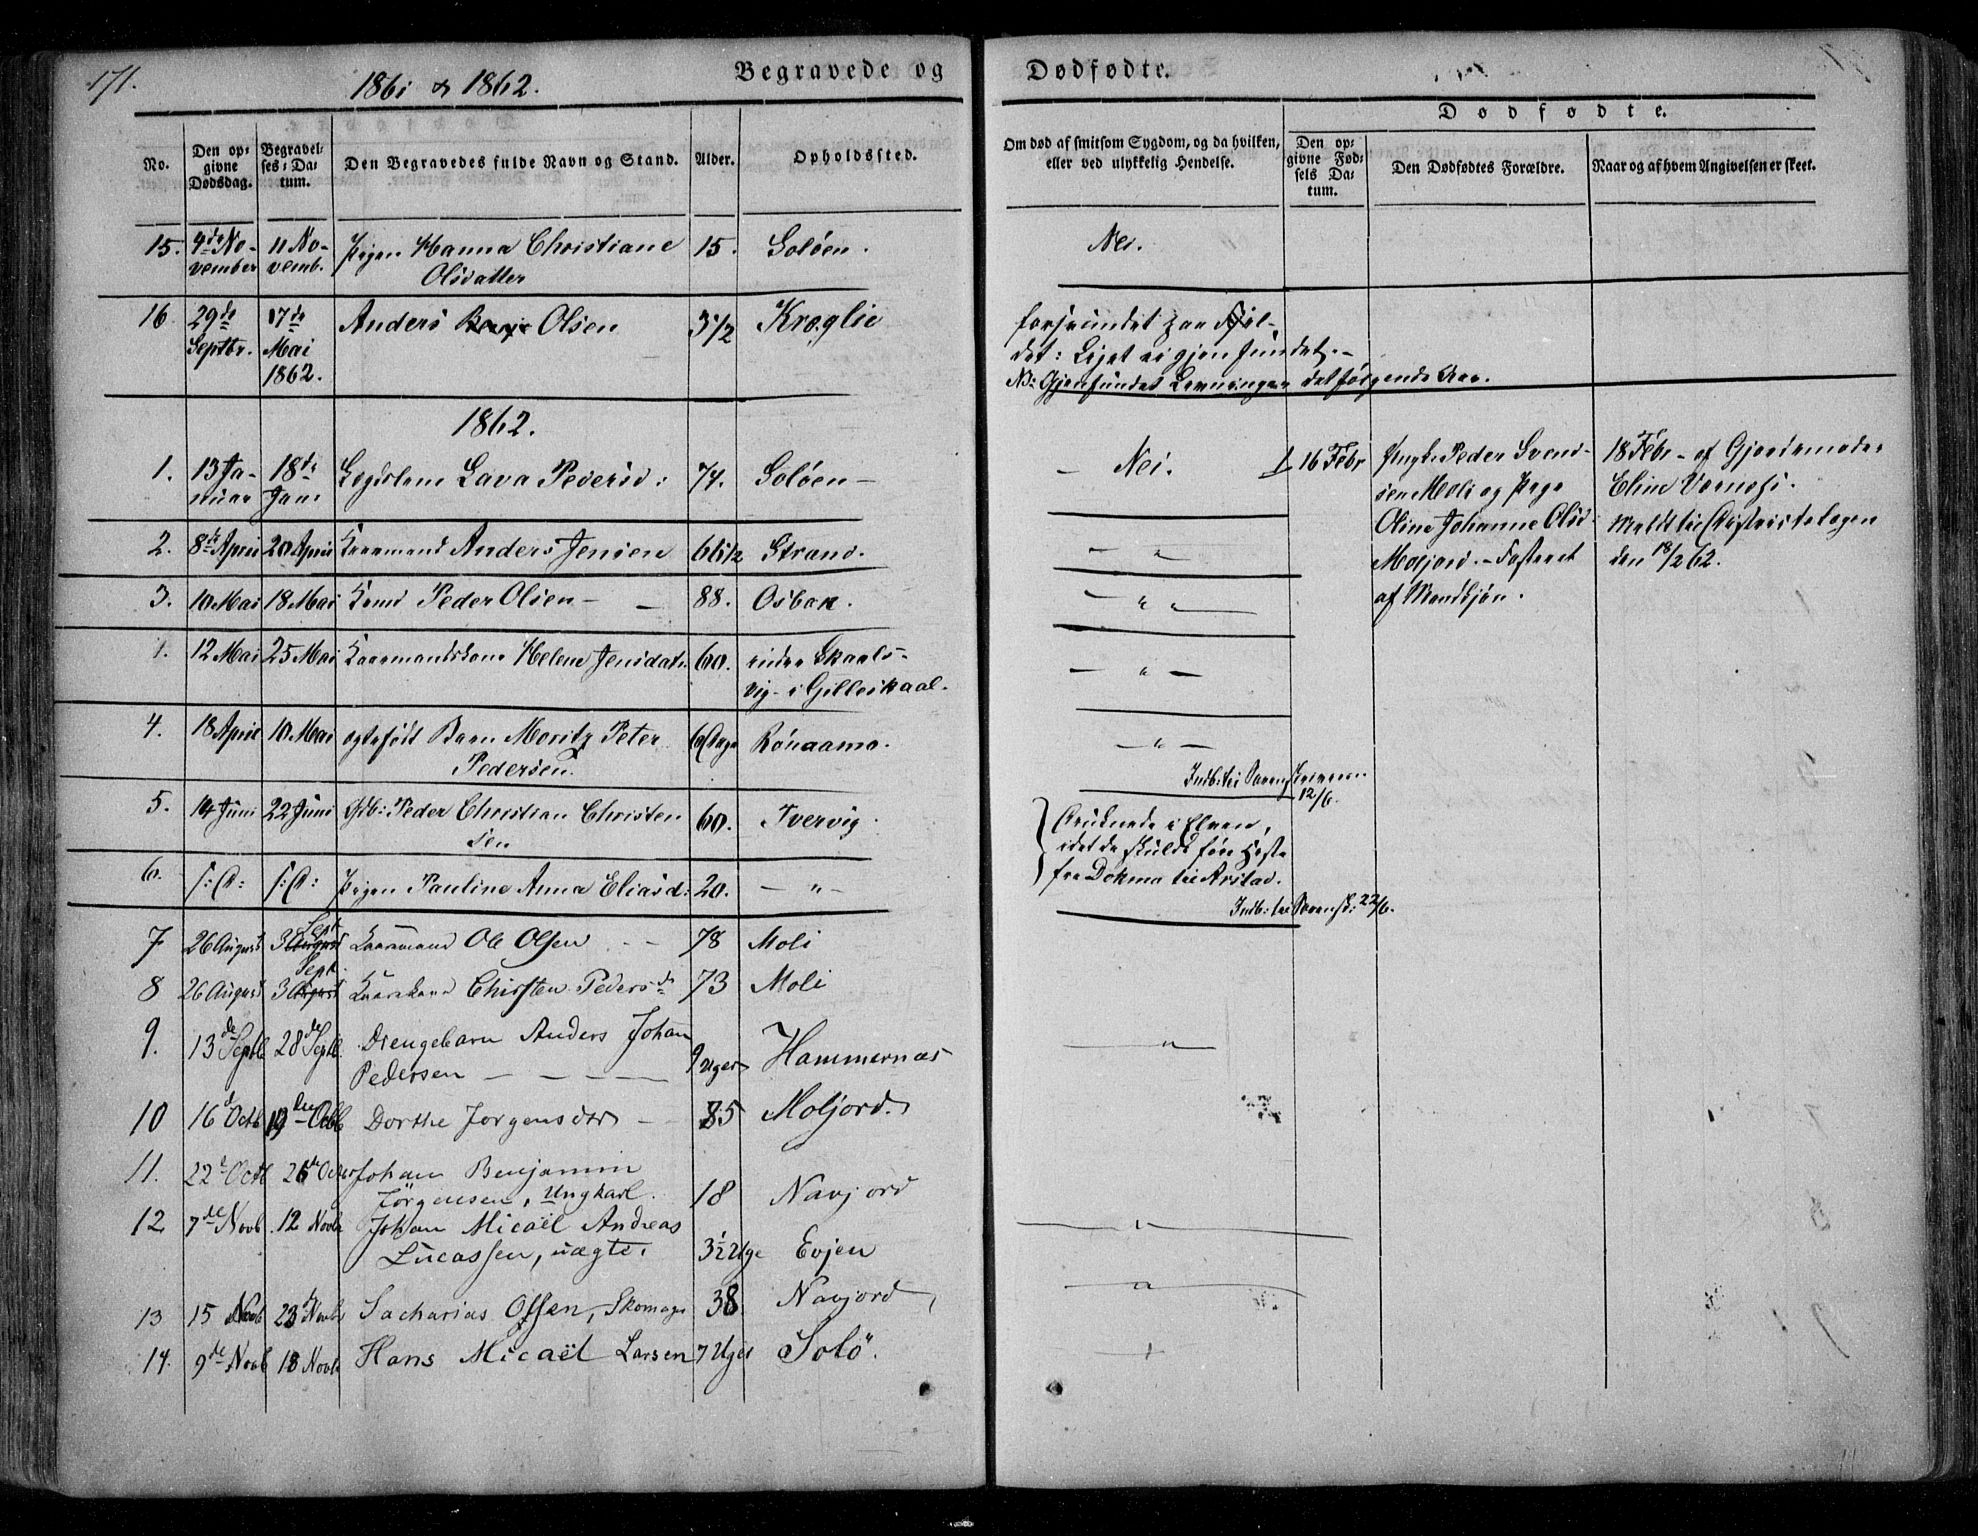 171.
1861 & 1862.
Begravede og
Dødfødte.
Dødfødte.
No.
Den opgivne Dødsdag.
Begravelses-Datum.
Den Begravedes fulde Navn og Stand.
Alder.
Opholdssted.
Om død af smitsom Sygdom, og da hvilken, eller ved ulykkelig Hendelse.
Den opgivne Fødsels Datum.
Den Dødfødtes Forældre.
Naar og af hvem Angivelsen er skeet.
15. 4de No- 11 No- Pigen Hanna Christiane 15. Soløen. Nei.
vember vemb. Olsdatter
16. 29de 17de Anders Olsen 3 1/2 Kroglie
Septbr. Mai
1862.
det: Liget ei gjenfundet. -
NB: Gjenfundet Levninger det følgende Aar.
1862.
1. 13 Ja- 18de Lægdslem Lava Pedersd: 74. Soløen - - Nei.
nuar Jan:
1 16 Febr Ungk: Peder Svend- 18 Febr - af Gjordemoder
sen Moli og Pige Eline Vornæs.
Oline Johanne Olsd. Meldt til Skifteretten
Moljord. - Fosteret den 18/2 62.
af Mandkjøn.
2. 8de April 20 April Kaarmand Anders Jensen Strand. - " -
3. 10 Mai 18 Mai Peder Olsen - - 88. Osbak. - " -
12 Mai 25 Mai Kaarmandskone Helene Jensdat. 60. Skaals-
vig - i Gilleskaal. - " -
4. 18 April 10 Mai ægtefødt Barn Moritz Peter Rønaamo. - " -
Pedersen.
Indb: til
12/6.
5. 14 Juni 22 Juni Gdb: Peder Christian Christen 60. Tvervig.
sen
Druknede i Elven,
idet de skulde føre Heste
fra Dokmo til Arstad.
6. s: D: s: D: Pigen Pauline Anna Eliasd: 20. - " -
Indb: til 22/6.
7 26 August 3 Sept. Kaarmand Ole Olsen - - 78 Moli
8 26 August 3 Sept. Kaarkone Chirsten Pedersdr 73 Moli
9. 13de Septb 28de Septb. Drengebarn Anders Johan
Pedersen - - - - 9 Uger Hammernæs - " -
10 16d Octb 19de Octb Dorthe Jørgensdtr - 85 Moljord.
11. 22de Octb 26de Octb Johan Benjamin
Jørgensen, Ungkarl. 18 Navjord
12 7de Novb 12 Novb Johan Micaël Andreas
Lucassen, uægte. 3 1/2 Uge Evjen - " -
13 15 Novb 23 Novb Sacharias Olsen, Skomager 38 Navjord, - " -
14. 9de Novb 18 Novb Hans Micaël Larsen 7 Uger Solö.